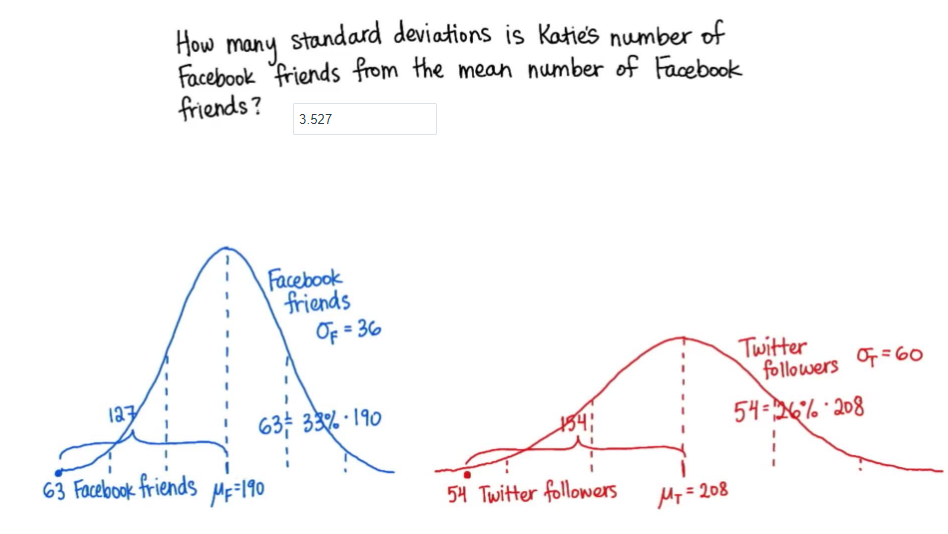 How many standard deviations is Katie's number of
Facebook friends from the mean number of Facebook
friends?
3.527
Facebook
friends
σF = 36
127
63 = 33% · 190
63 Facebook friends
μF=190
Twitter
followers
σT = 60
154
54 = 26% · 208
54 Twitter followers
μT = 208